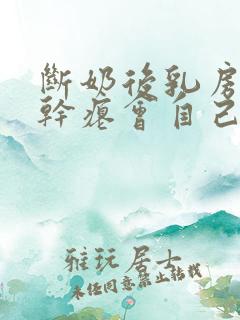 斷奶後乳房
幹癟會自己
雅玩居士
未经同意禁止转载